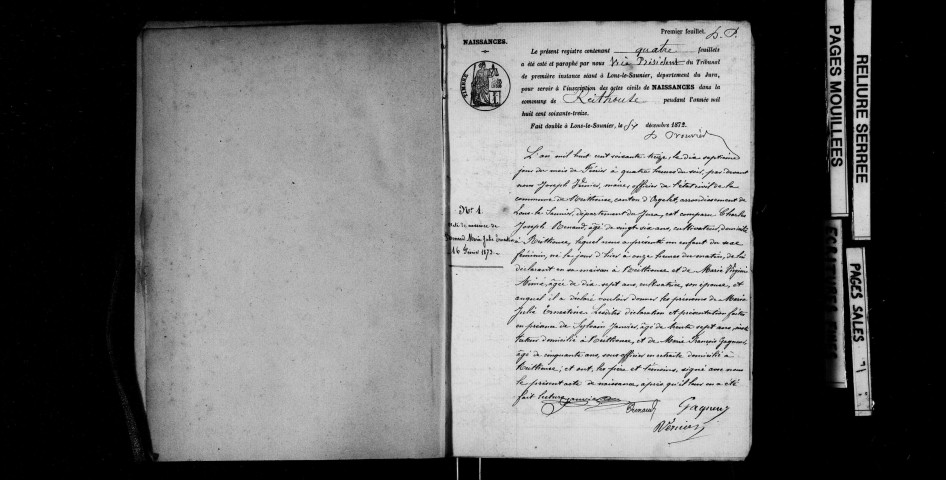 Premier feuillet. D. P.
NAISSANCES.
Le présent registre contenant quatre feuillets
a été coté et paraphé par nous Vice Président du Tribunal
de première instance séant à Lons-le-Saunier, département du Jura,
pour servir à l'inscription des actes civils de NAISSANCES dans la
commune de Réthouse pendant l'année mil
huit cent soixante-treize.
Fait double à Lons-le-Saunier, le décembre 1872.
TIMBRE
L'an mil huit cent soixante treize, le dix septième
jour du mois de Février à quatre heures du soir, par devant
nous Joseph maire, officier de l'état civil de la
commune de Réthouse, canton d'Orgelet, arrondissement de
Lons-le-Saunier, département du Jura, est comparu Charles
Joseph Renaud, âgé de vingt six ans, cultivateur, domicilié
à Réthouse, lequel nous a présenté un enfant du sexe
féminin, né le jour d'hier à onze heures du matin, de lui
déclarant en sa maison à Réthouse et de Marie Virginie
âgée de dix sept ans, cultivatrice, son épouse, et
auquel il a déclaré vouloir donner les prénoms de Marie
Julie Ernestine. Lesdites déclaration et présentation faites
en présence de Sylvain Janvier, âgé de trente sept ans, insti
tuteur domicilié à Réthouse, et de Marie François Gagneur,
âgé de cinquante ans, sous officier en retraite domicilié à
Réthouse; et ont, les père et témoins, signé avec nous
le présent acte de naissance, après qu'il leur en a été
fait lecture.
Renaud Gagneur
N° 1.
Acte de naissance de
Renaud Marie Julie Ernestine
16 1873.
PAGES MOUILLEES
RELIURE SERREE
PAGES SALES